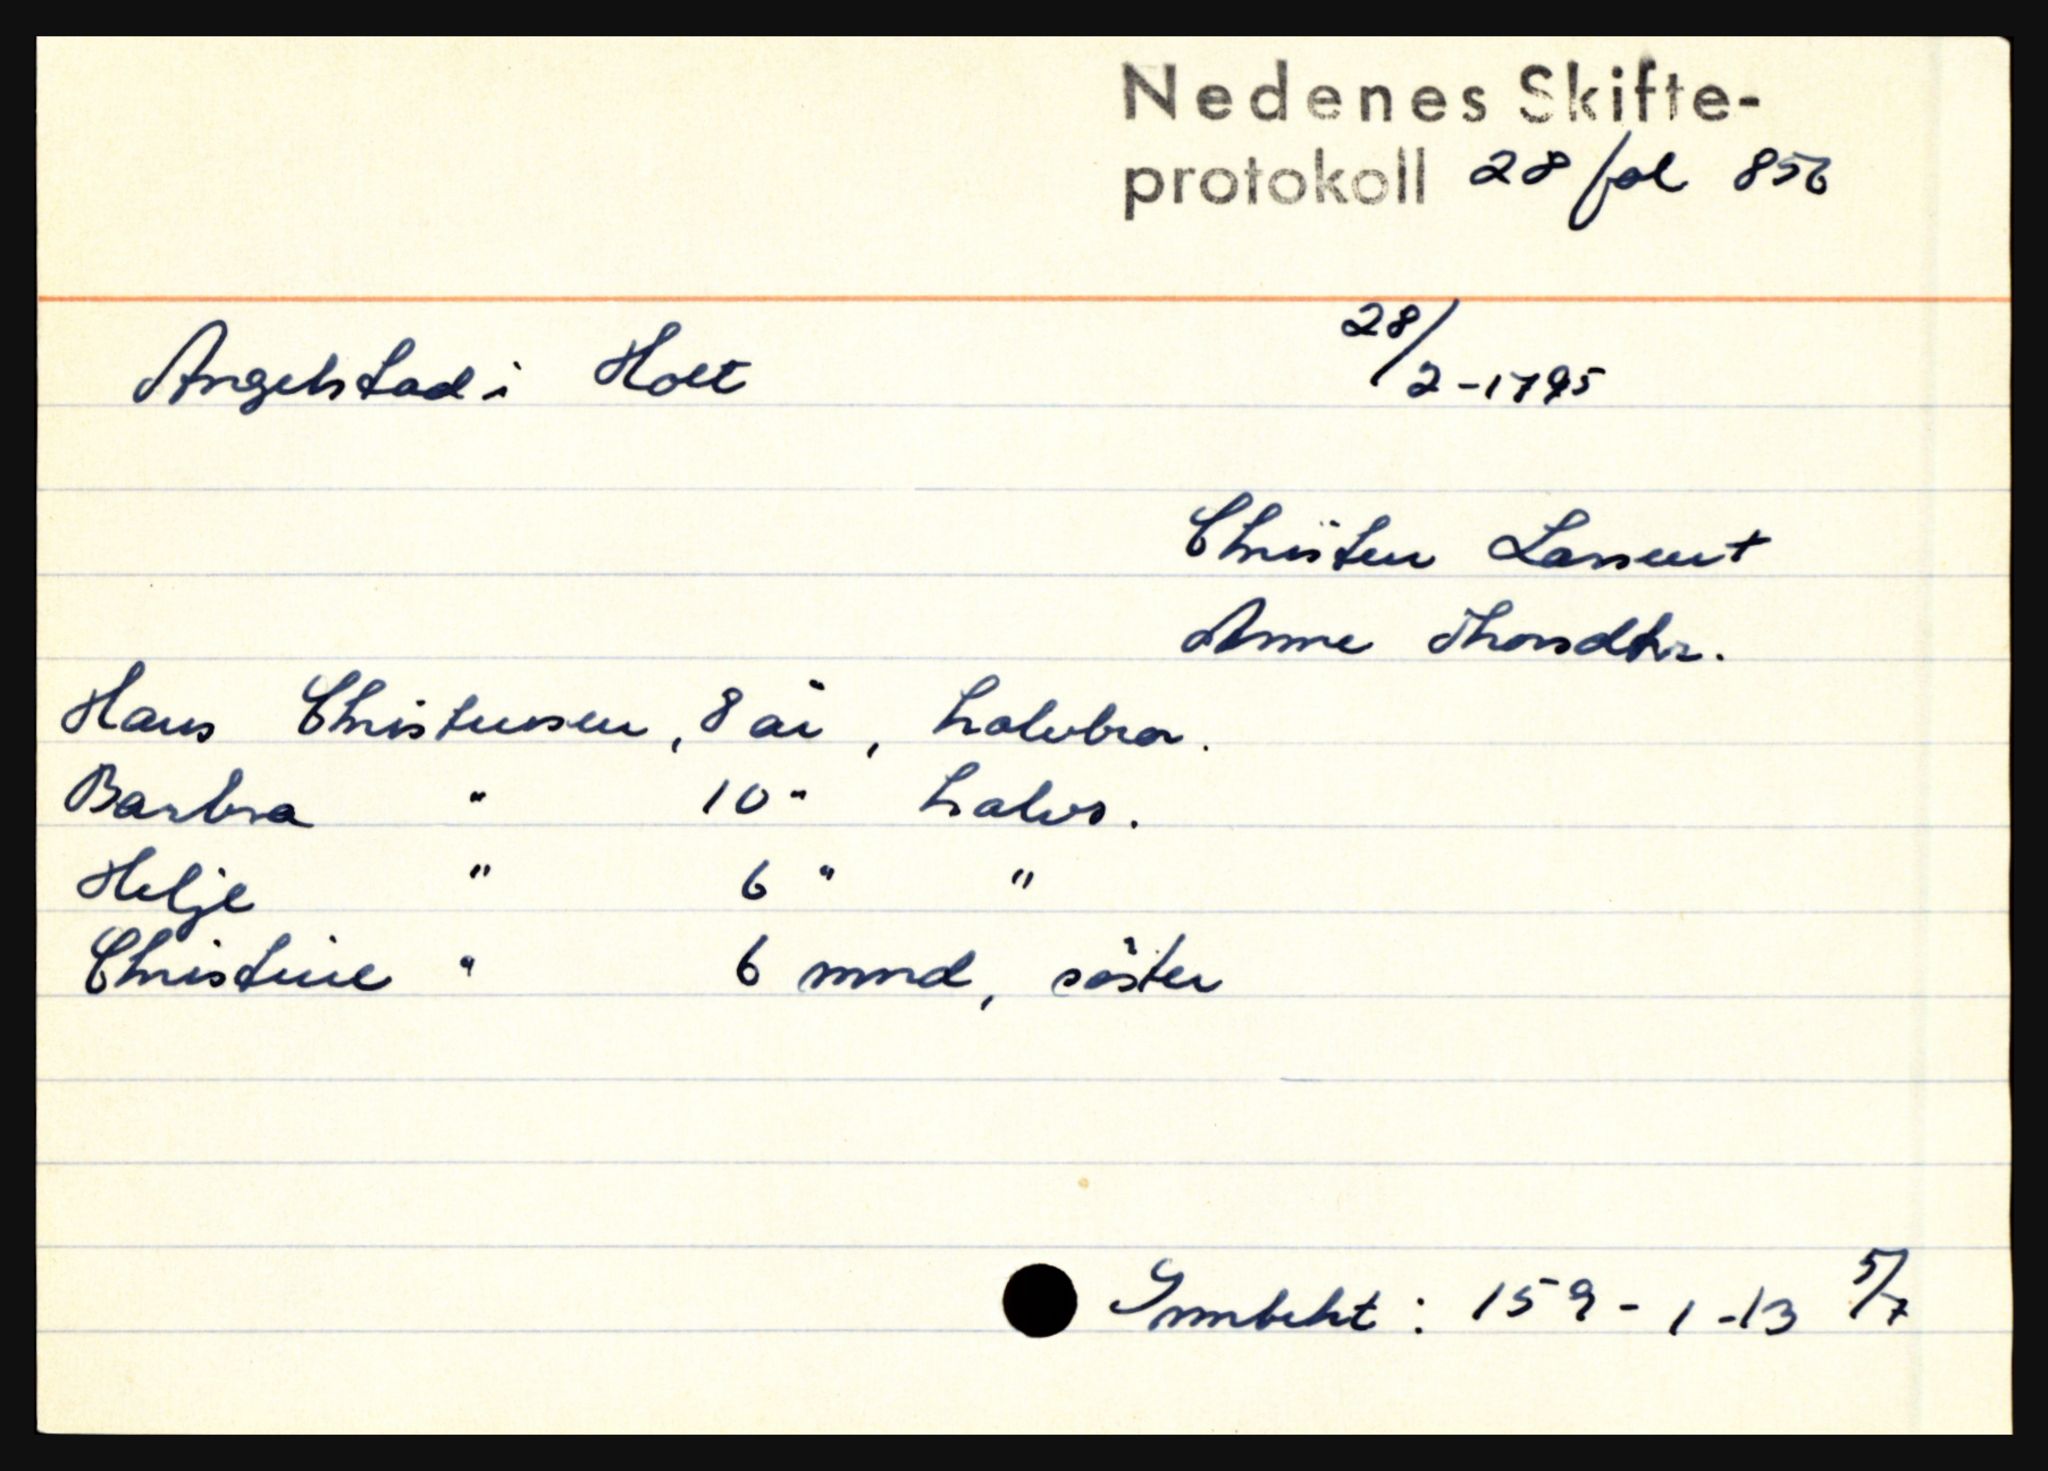 Nedenes Skifte-
protokoll 28 fol 856
Angelstad i Holt 28/2-1795
Christen Larsen †
Anne Thorsdtr.
Hans Christensen, 8 år, halvbror.
Barbra " 10 " halvs.
Helje " 6 " "
Christine " 6 mnd, søster
Innbeht : 159 - 1 - 13 5/7